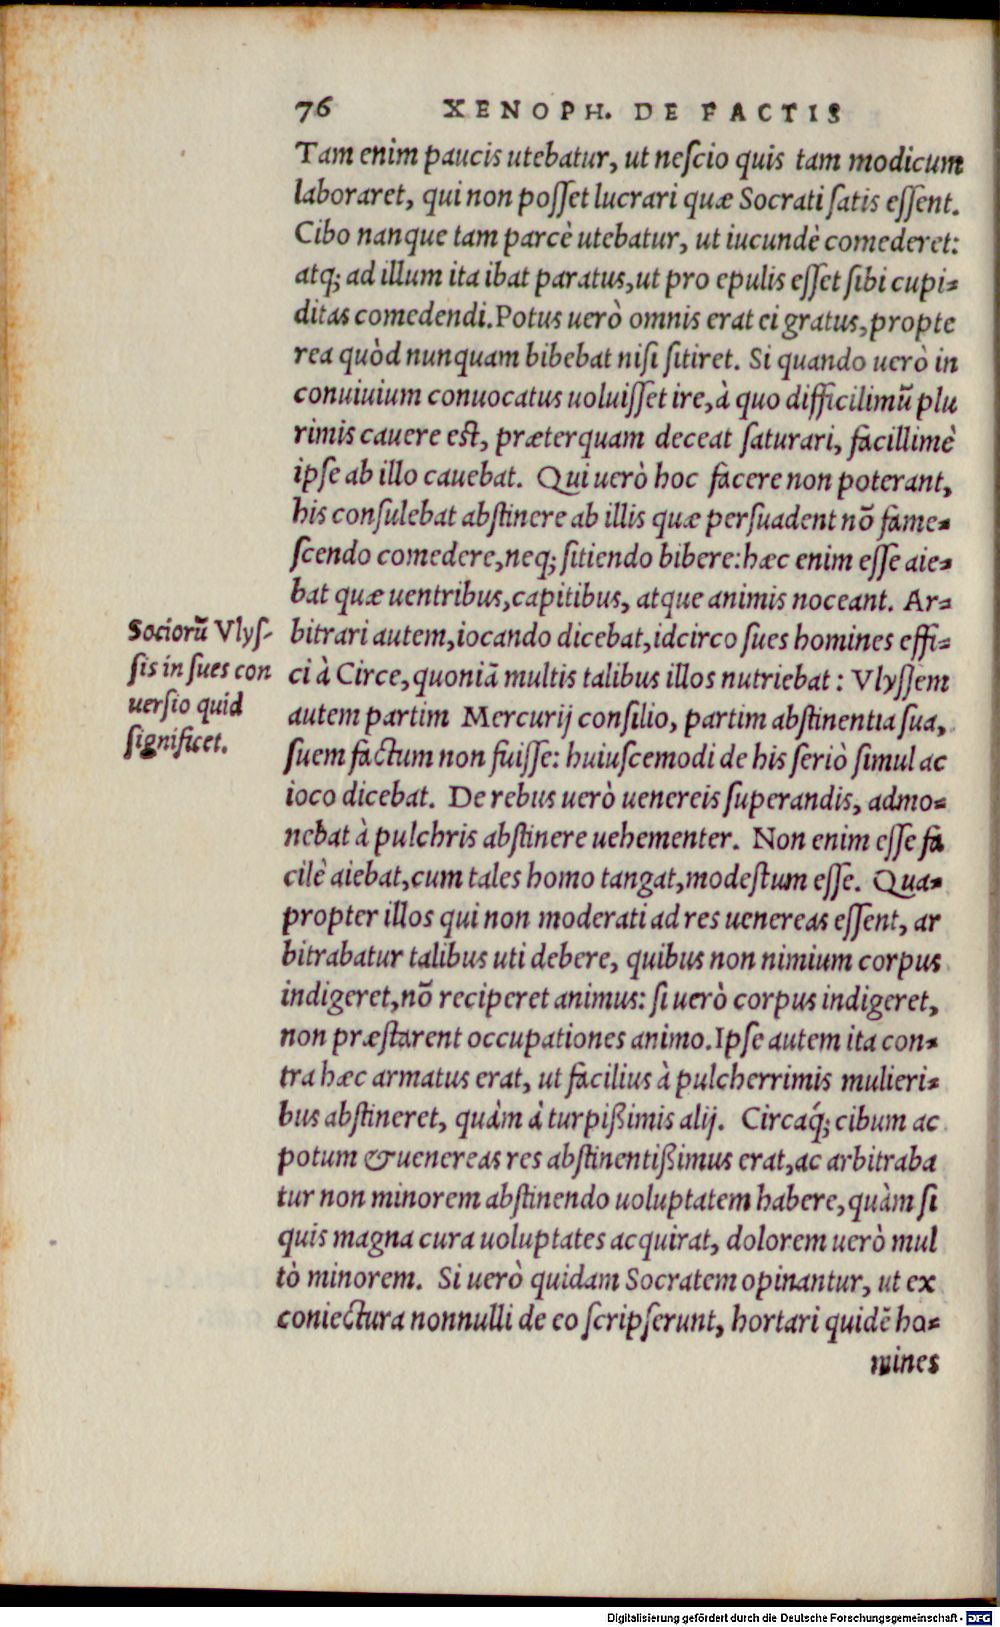 76 XENOPH. DE FACTIS
Tam enim paucis utebatur, ut neſcio quis tam modicum
laboraret, qui non poſſet lucrari quæ Socrati ſatis eſſent.
Cibo nanque tam parcè utebatur, ut iucundè comederet:
atq; ad illum ita ibat paratus, ut pro epulis eſſet ſibi cupi-
ditas comedendi. Potus uerò omnis erat ei gratus, propte
rea quòd nunquam bibebat niſi ſitiret. Si quando uerò in
conuiuium conuocatus uoluiſſet ire, à quo difficilimũ plu
rimis cauere eſt, præterquam deceat ſaturari, facillimè
ipſe ab illo cauebat. Qui uerò hoc facere non poterant,
his conſulebat abſtinere ab illis quæ perſuadent nõ fame-
ſcendo comedere, neq; ſitiendo bibere: hæc enim eſſe aie-
bat quæ uentribus, capitibus, atque animis noceant. Ar-
bitrari autem, iocando dicebat, idcirco ſues homines effi-
ci à Circe, quoniã multis talibus illos nutriebat: Vlyſſem
autem partim Mercurij conſilio, partim abſtinentia ſua,
ſuem factum non fuiſſe: huiuſcemodi de his ſeriò ſimul ac
ioco dicebat. De rebus uerò uenereis ſuperandis, admo-
nebat à pulchris abſtinere uehementer. Non enim eſſe fa
cilè aiebat, cum tales homo tangat, modeſtum eſſe. Qua-
propter illos qui non moderati ad res uenereas eſſent, ar
bitrabatur talibus uti debere, quibus non nimium corpus
indigeret, nõ reciperet animus: ſi uerò corpus indigeret,
non præſtarent occupationes animo. Ipſe autem ita con-
tra hæc armatus erat, ut facilius à pulcherrimis mulieri-
bus abſtineret, quàm à turpißimis alij. Circaq́; cibum ac
potum & uenereas res abſtinentißimus erat, ac arbitraba
tur non minorem abſtinendo uoluptatem habere, quàm ſi
quis magna cura uoluptates acquirat, dolorem uerò mul
tò minorem. Si uerò quidam Socratem opinantur, ut ex
coniectura nonnulli de eo ſcripſerunt, hortari quidẽ ho-
mines
Sociorũ Vlyſ-
ſis in ſues con
uerſio quid
ſignificet.
Digitalisierung gefördert durch die Deutsche Forschungsgemeinschaft - DFG